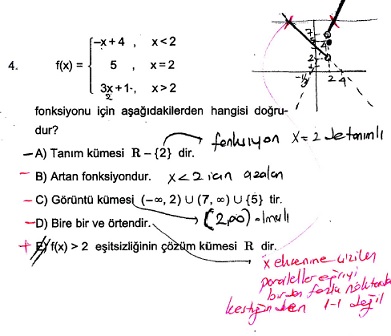 4.
f(x) =
-x + 4 , x < 2
5 , x = 2
3x + 1 , x > 2
2
7
5
4
2
-1/3
2 4
fonksiyonu için aşağıdakilerden hangisi doğru-
dur?
A) Tanım kümesi R - {2} dir. fonksiyon x = 2 de tanımlı
B) Artan fonksiyondur. x < 2 için azalan
C) Görüntü kümesi (-∞, 2) ∪ (7, ∞) ∪ {5} tir.
D) Bire bir ve örtendir. (2, ∞) olmalı
E) f(x) > 2 eşitsizliğinin çözüm kümesi R dir.
x eksenine çizilen
paraleller eğriyi
birden fazla noktada
kestiğinden 1-1 değil